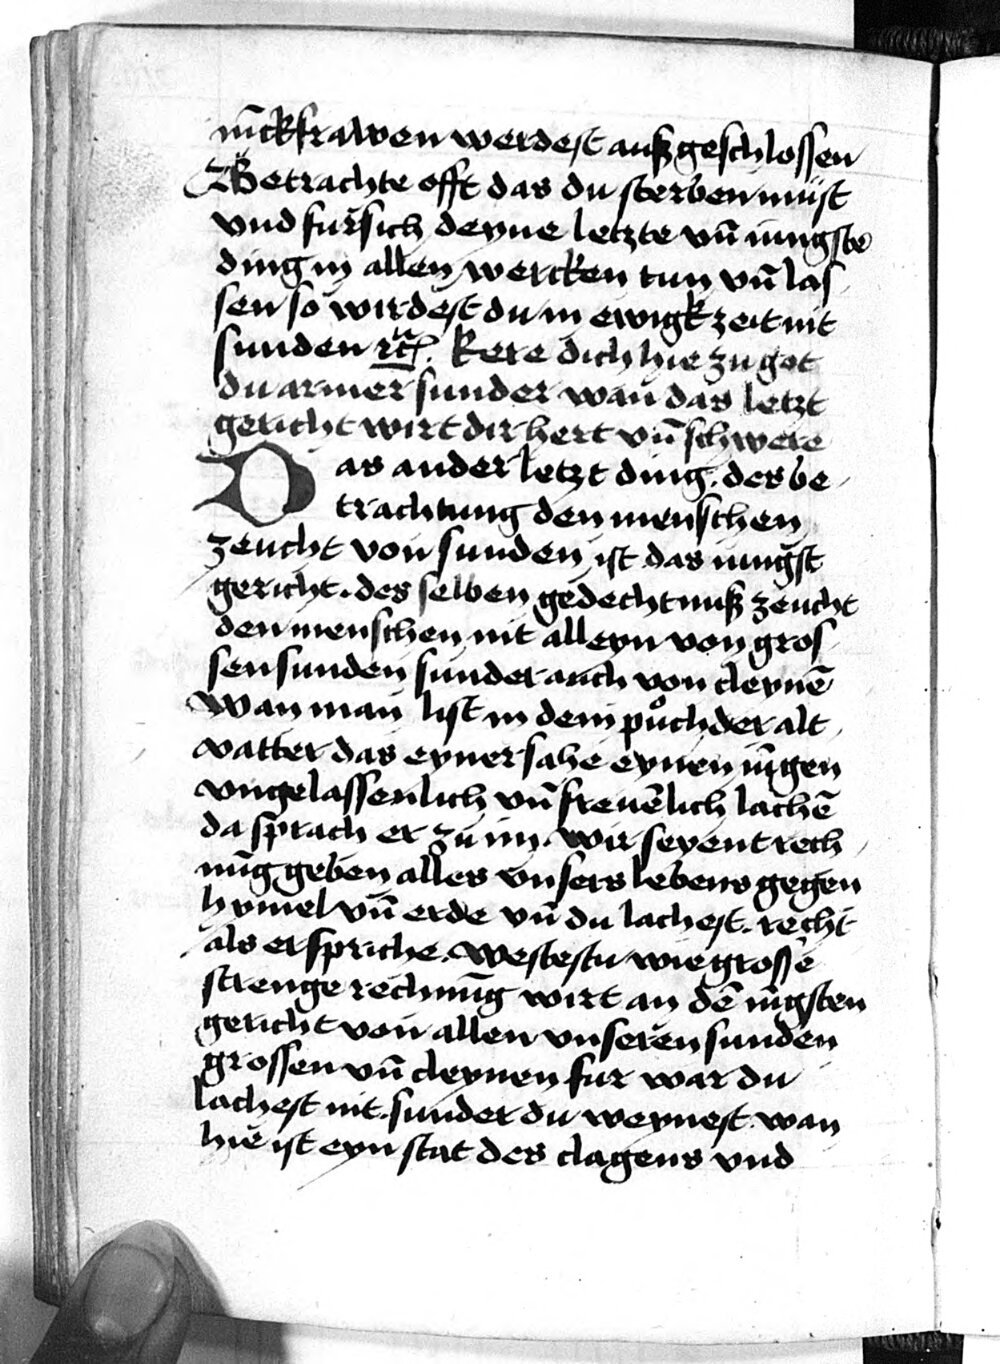 iũckfrawen werdest außgeschlossen
Betrachte offt das du sterben müst
vnd fürsich deyne letzte vñ iungste
ding in allen wercken tun vñ las
sen so wirdest du in ewigk zeit nit
sunden ꝛc. Kere dich hie zu got
du armer sunder wañ das letzt
gericht wirt dir hert vñ schwere
Das ander letzt ding. des be
trachtung den menschen
zeucht von sunden ist das iungst
gericht. des selben gedechtnuß zeucht
den menschen nit alleyn von gros
sen sunden sunder auch von cleynē
Wan man list in dem půch der alt
vatter das eyner sahe eynen iũgen
vngelassenlich vñ freuēlich lachē
da sprach er zu im. wir seyent rech
nũg geben alles vnsers lebens gegen
hymel vñ erde vñ du lachest. recht
als er spriche. westestu wie grosse
strenge rechnũg wirt an dē iũgsten
gericht von allen vnseren sunden
grossen vñ cleynen fur war du
lachest nit. sunder du weynest. wan
hie ist eyn stat des clagens vnd